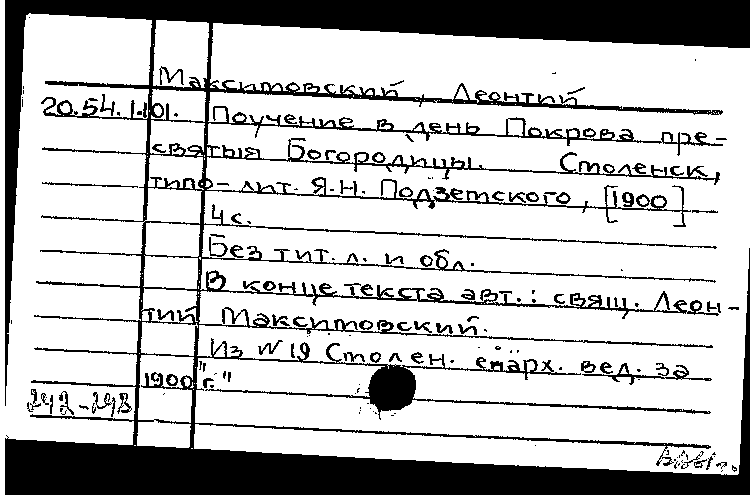 Максимовский, Леонтий
20.54.1.101. Поучение в день Покрова пре-
святыя Богородицы. Смоленск,
типо-лит. Я.Н. Подземского, [1900]
4 с.
Без тит. л. и обл.
В конце текста авт.: свящ. Леон-
тий Максимовский.
Из "№ 19 Смолен. епарх. вед. за
1900 г."
242-243